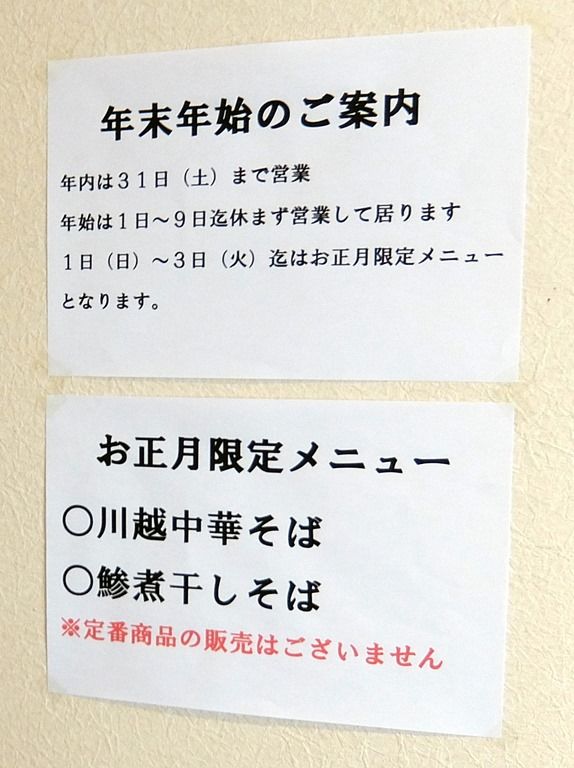 年末年始のご案内
年内は31日（土）まで営業
年始は1日～9日迄休まず営業して居ります
1日（日）～3日（火）迄はお正月限定メニュー
となります。
お正月限定メニュー
〇川越中華そば
〇鯵煮干しそば
※定番商品の販売はございません